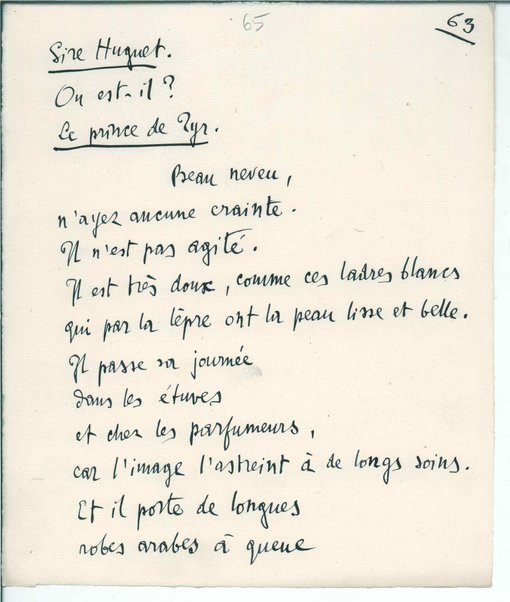 65
63
Sire Huguet.
Où est-il ?
Le prince de Tyr.
Beau neveu,
n'ayez aucune crainte.
Il n'est pas agité.
Il est très doux, comme ces ladres blancs
qui par la lèpre ont la peau lisse et belle.
Il passe sa journée
dans les étuves
et chez les parfumeurs,
car l'image l'astreint à de longs soins.
Et il porte de longues
robes arabes à queue